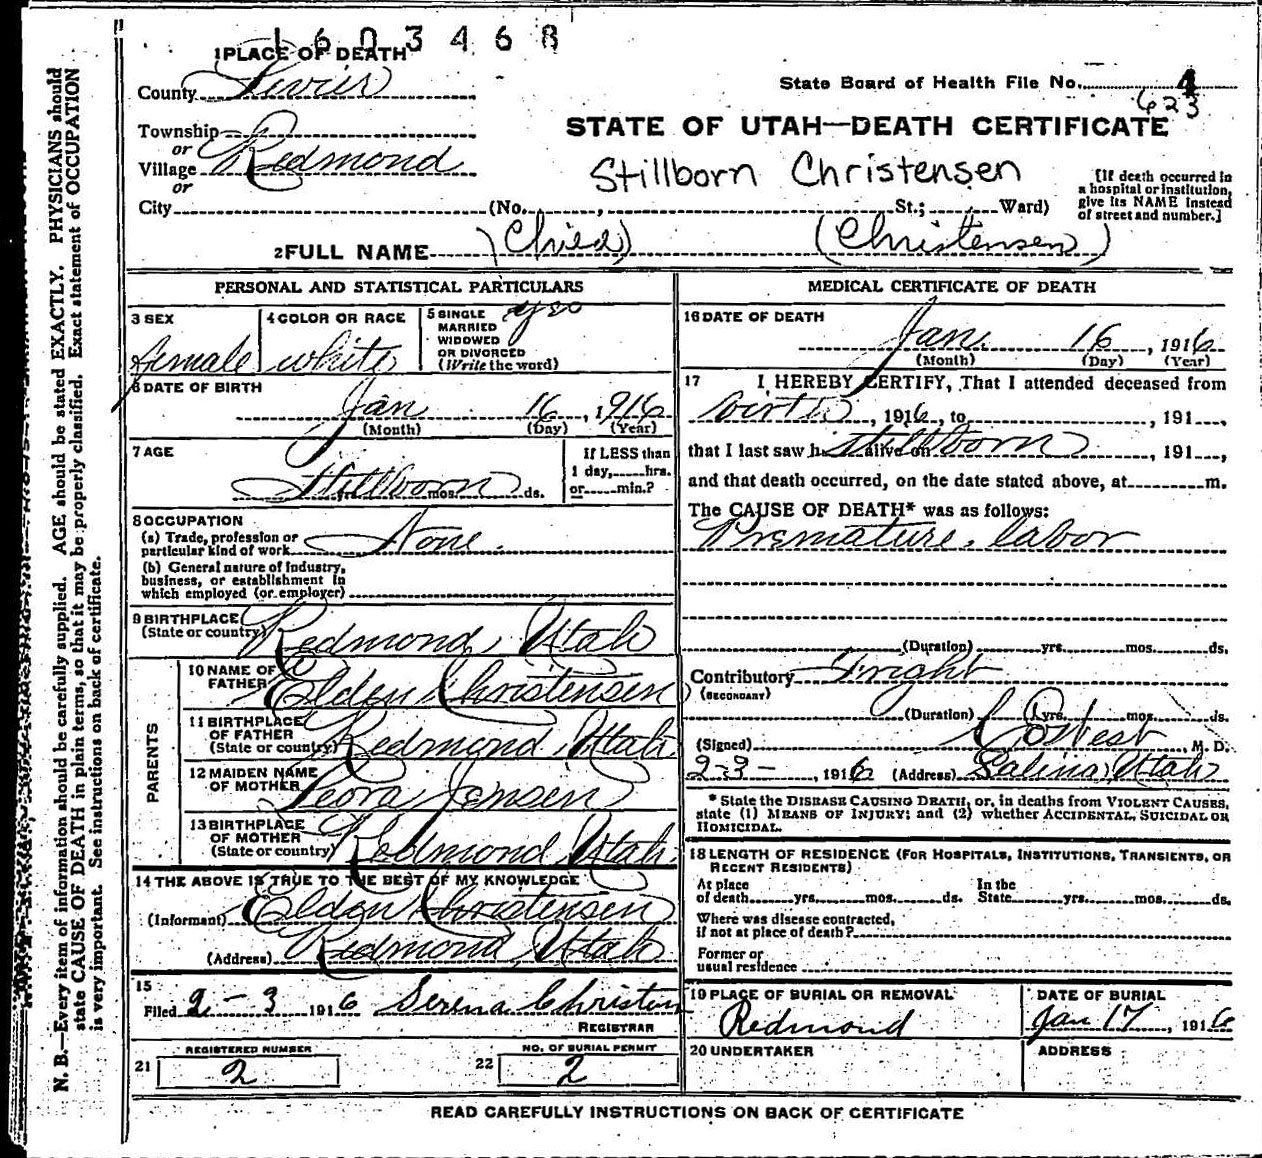 1603468
1 PLACE OF DEATH
County Sevier
State Board of Health File No. 4
623
Township
or
Village Redmond
or
STATE OF UTAH—DEATH CERTIFICATE
Stillborn Christensen
[If death occurred in a hospital or institution, give its NAME instead of street and number.]
City (No. , St.; Ward)
2 FULL NAME (Child) (Christensen)
PERSONAL AND STATISTICAL PARTICULARS
3 SEX
female
4 COLOR OR RACE
white
5 SINGLE yes
MARRIED
WIDOWED
OR DIVORCED
(Write the word)
6 DATE OF BIRTH
Jan 16, 1916
(Month) (Day) (Year)
7 AGE
Stillborn yrs. mos. ds.
If LESS than
1 day, hrs.
or min.?
8 OCCUPATION
(a) Trade, profession or
particular kind of work None.
(b) General nature of industry,
business, or establishment in
which employed (or employer)
9 BIRTHPLACE
(State or country) Redmond, Utah
PARENTS
10 NAME OF
FATHER Elden Christensen
11 BIRTHPLACE
OF FATHER
(State or country) Redmond, Utah
12 MAIDEN NAME
OF MOTHER Leora Jensen
13 BIRTHPLACE
OF MOTHER
(State or country) Redmond Utah
14 THE ABOVE IS TRUE TO THE BEST OF MY KNOWLEDGE
(Informant) Elden Christensen
(Address) Redmond, Utah
15
Filed 2-3 1916 Serena Christen
REGISTRAR
21 REGISTERED NUMBER
2
22 NO. OF BURIAL PERMIT
2
MEDICAL CERTIFICATE OF DEATH
16 DATE OF DEATH
Jan. 16, 1916
(Month) (Day) (Year)
17 I HEREBY CERTIFY, That I attended deceased from
birth, 1916, to , 191 ,
that I last saw h alive on stillborn, 191 ,
and that death occurred, on the date stated above, at m.
The CAUSE OF DEATH* was as follows:
Premature labor
(Duration) yrs. mos. ds.
Contributory Fright
(SECONDARY)
(Duration) yrs. mos. ds.
(Signed) West, M. D.
2-3-, 1916 (Address) Salina, Utah
* State the DISEASE CAUSING DEATH, or, in deaths from VIOLENT CAUSES,
state (1) MEANS OF INJURY; and (2) whether ACCIDENTAL, SUICIDAL OR
HOMICIDAL.
18 LENGTH OF RESIDENCE (FOR HOSPITALS, INSTITUTIONS, TRANSIENTS, OR
RECENT RESIDENTS)
At place In the
of death yrs. mos. ds. State yrs. mos. ds.
Where was disease contracted,
if not at place of death?
Former or
usual residence
19 PLACE OF BURIAL OR REMOVAL
Redmond
DATE OF BURIAL
Jan 17, 1916
20 UNDERTAKER
ADDRESS
READ CAREFULLY INSTRUCTIONS ON BACK OF CERTIFICATE
N. B.—Every item of information should be carefully supplied. AGE should be stated EXACTLY. PHYSICIANS should
state CAUSE OF DEATH in plain terms, so that it may be properly classified. Exact statement of OCCUPATION
is very important. See instructions on back of certificate.